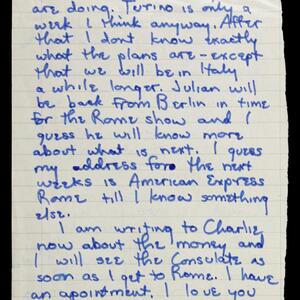 are doing. Turino is only a
week I think anyway. After
that I dont know exactly
what the plans are - except
that we will be in Italy
a while longer. Julian will
be back from Berlin in time
for the Rome show and I
guess he will know more
about what is next. I guess
my address for the next
weeks is American Express
Rome till I know something
else.
I am writing to Charlie
now about the money and
I will see the Consulate as
soon as I get to Rome. I have
an appointment. I love you